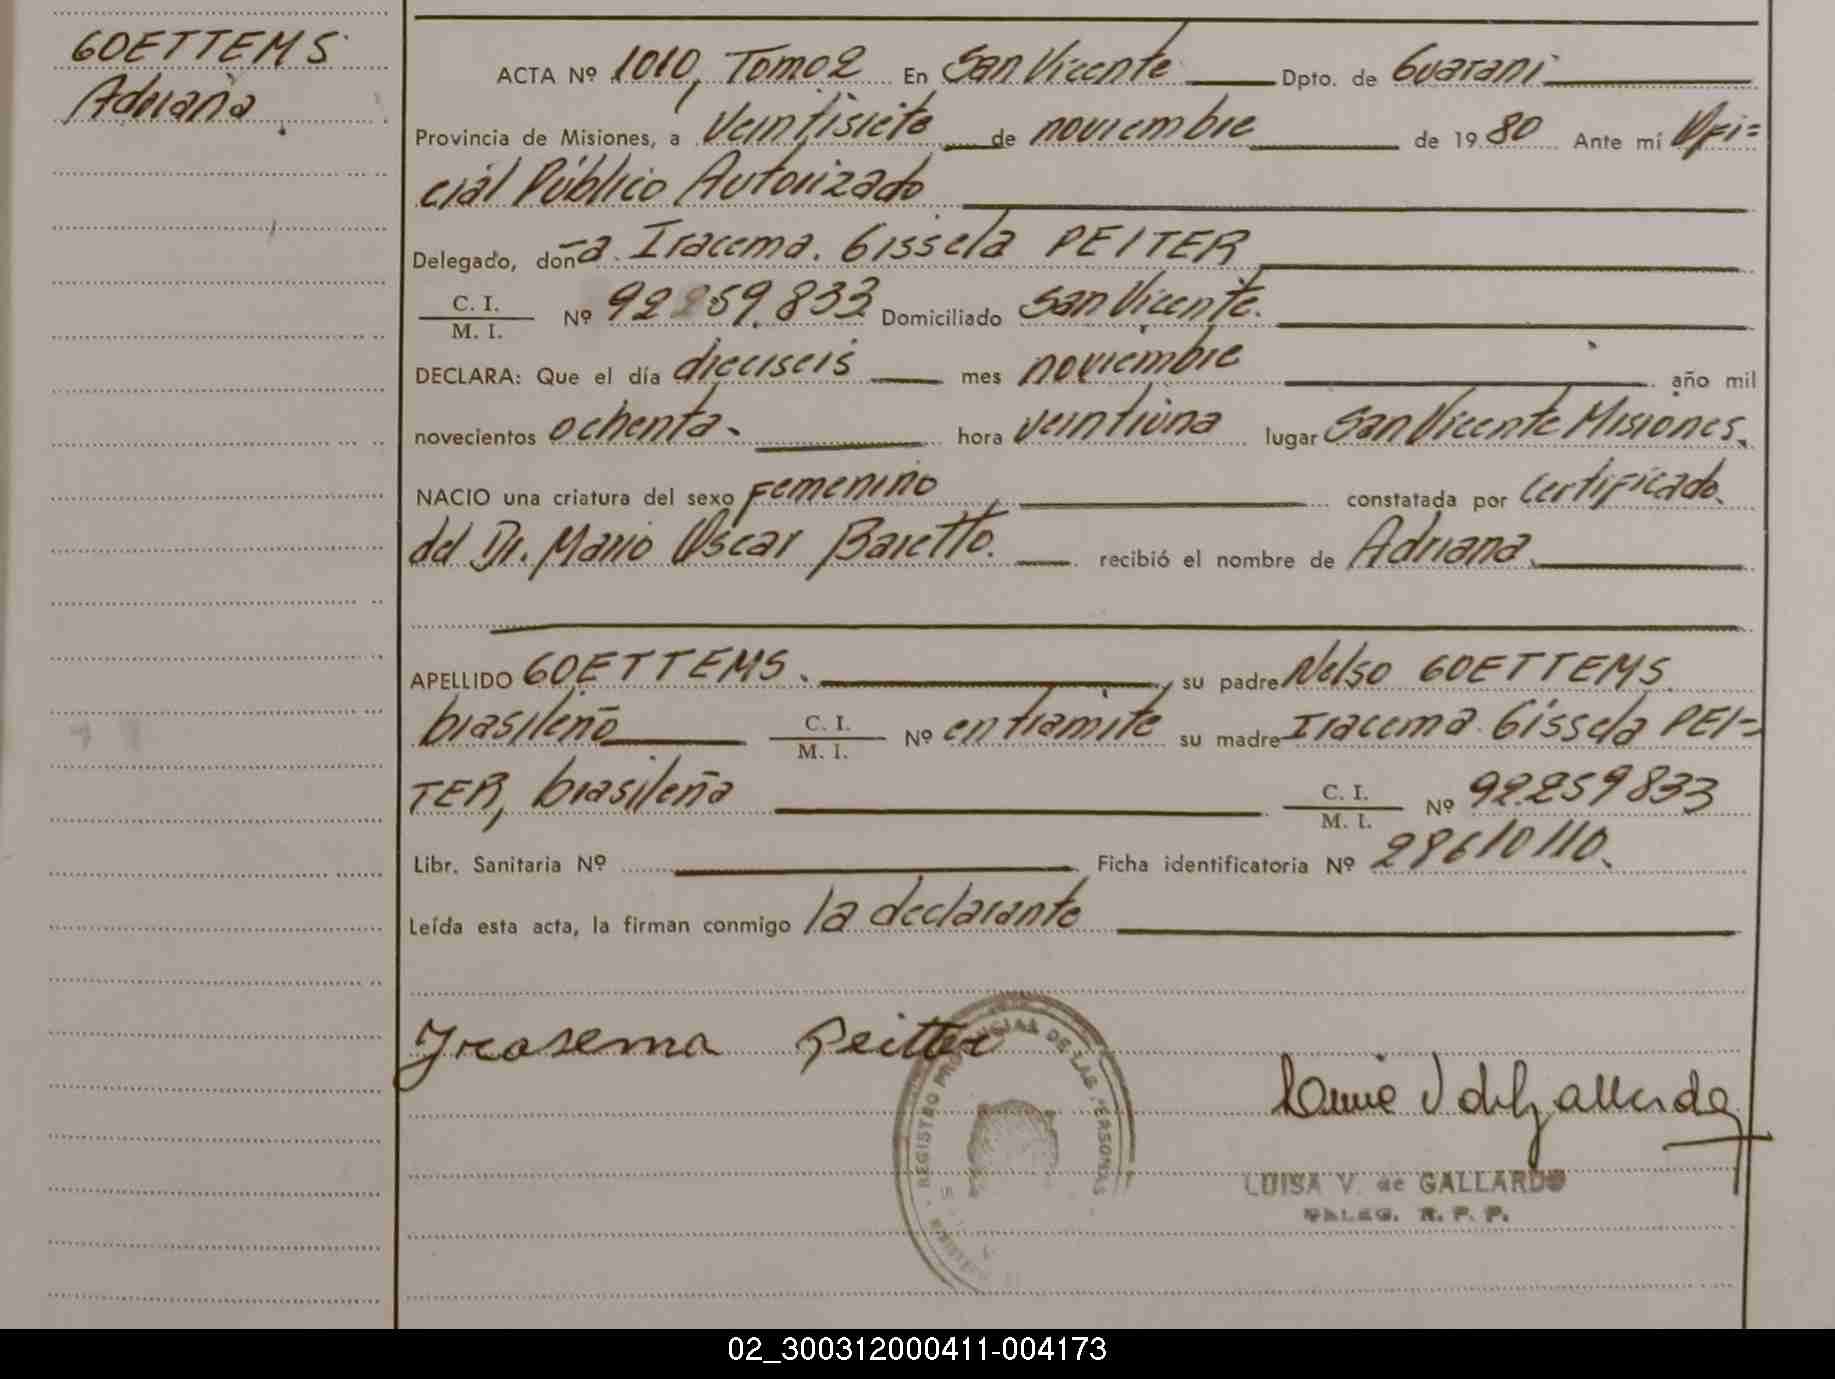 GOETTEMS
Adriana
ACTA Nº 1010, Tomo 2 En San Vicente Dpto. de Guarani
Provincia de Misiones, a veintisiete de noviembre de 19 80 Ante mí Ofi=
cial Público Autorizado
Delegado, doña Iracema Gissela PEITER
C. I.
M. I. Nº 92259.833 Domiciliado San Vicente.
DECLARA: Que el día dieciseis mes noviembre año mil
novecientos ochenta- hora veintiuna lugar San Vicente Misiones.
NACIO una criatura del sexo femenino constatada por certificado
del Dr. Mario Oscar Baretto. recibió el nombre de Adriana
APELLIDO GOETTEMS. su padre Nelso GOETTEMS
brasileño C. I.
M. I. Nº en tramite su madre Iracema Gissela PEI=
TER, brasileña C. I.
M. I. Nº 92.259833
Libr. Sanitaria Nº Ficha identificatoria Nº 28610110.
Leída esta acta, la firman conmigo la declarante
Irasema Peitter
REGISTRO PROVINCIAL DE LAS PERSONAS
LUISA V. de GALLARDO
DELEG. R. P. P.
02_300312000411-004173